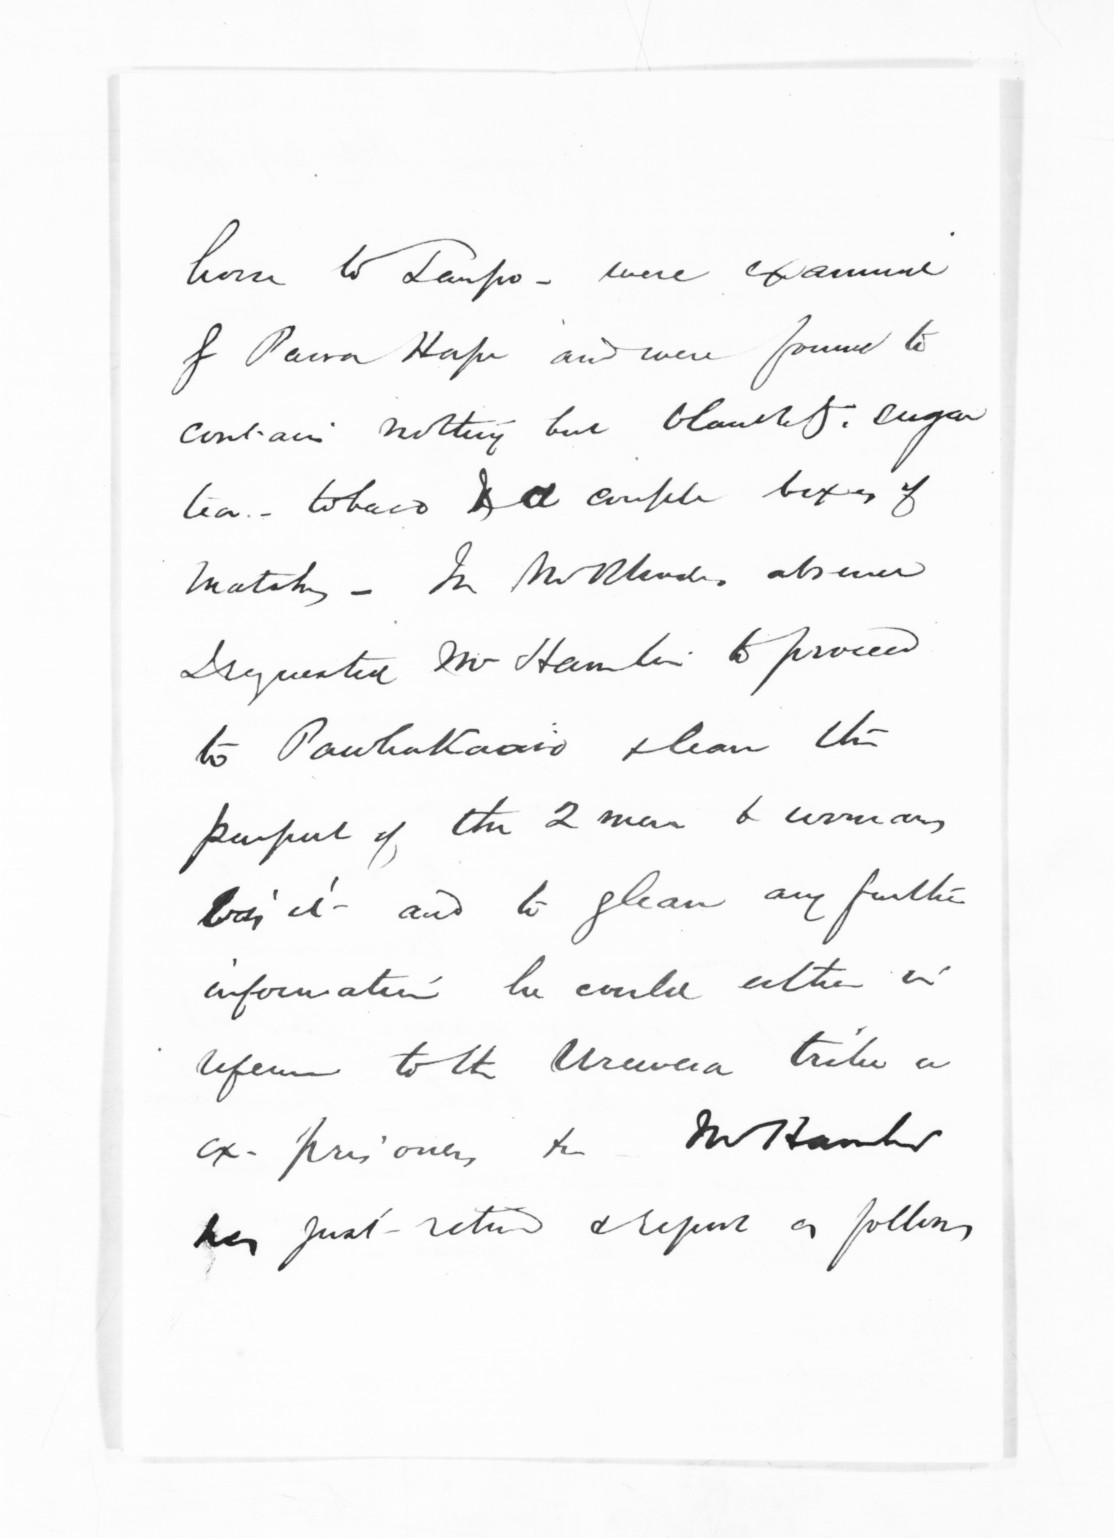 horse to Taupo - were examined
by Paora Hapi and were found to
contain nothing but blankets. sugar
tea - tobaco & a couple boxes of
matches - In Mr Rhodes absence
I requested Mr Hamlin to proceed
to PawhaKaairo & learn the
purport of the 2 men & womans
visit - and to glean any further
information he could either in
referen to the Urewera tribe or
ex-prisoners &c - Mr Hamlin
has just - retrnd & report as follows